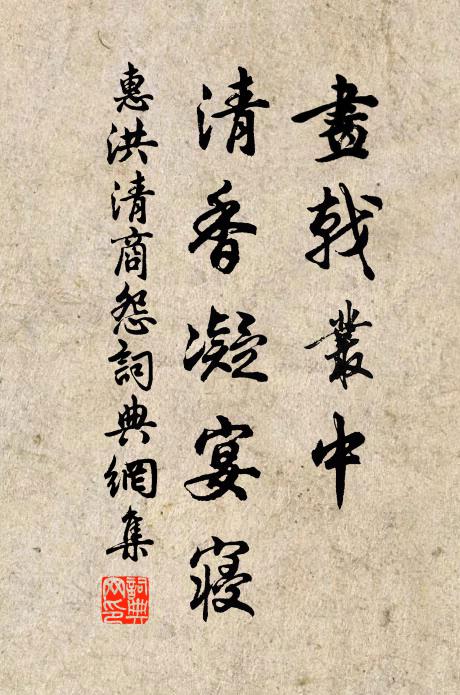 畫戟叢中
清香凝宴寢
惠洪清商怨詞典網集
詞典网印